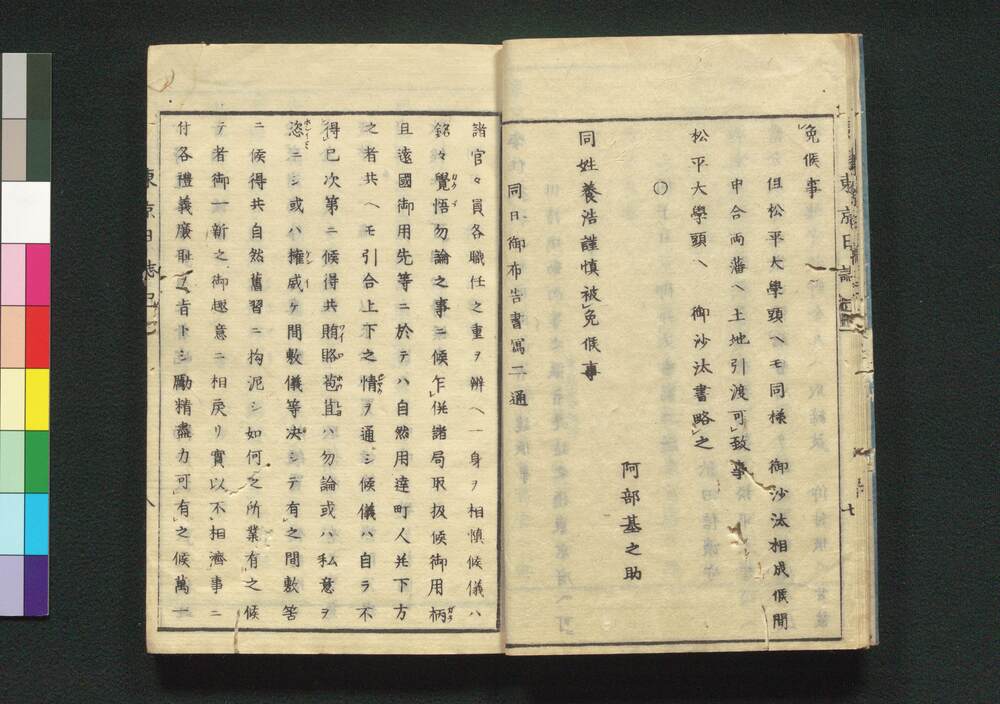 免候事
但松平大學頭ヘモ同様 御沙汰相成候間
申合両藩ヘ土地引渡可致事
松平大學頭ヘ 御沙汰書略之
○
阿部基之助
同姓養浩謹慎被免候事
同日御布告書寫二通
諸官々員各職任之重ヲ辨ヘ一身ヲ相慎候儀ハ
銘々覺悟勿論之事ニ候乍併諸局取扱候御用柄
且遠國御用先等ニ於テハ自然用達町人共下方
之者共ヘモ引合上下之情ヲ通シ候儀ハ自ラ不
得已次第ニ候得共賄賂苞苴ハ勿論或ハ私意ヲ
恣ニシ或ハ権威ヶ間敷儀等決シテ有之間敷筈
ニ候得共自然舊習ニ拘泥シ如何之所業有之候
テ者御一新之御趣意ニ相戻リ實以不相濟事ニ
付各禮義廉耻ヲ旨トシ勵精盡力可有之候萬一
東京日誌
七
東京日誌
八